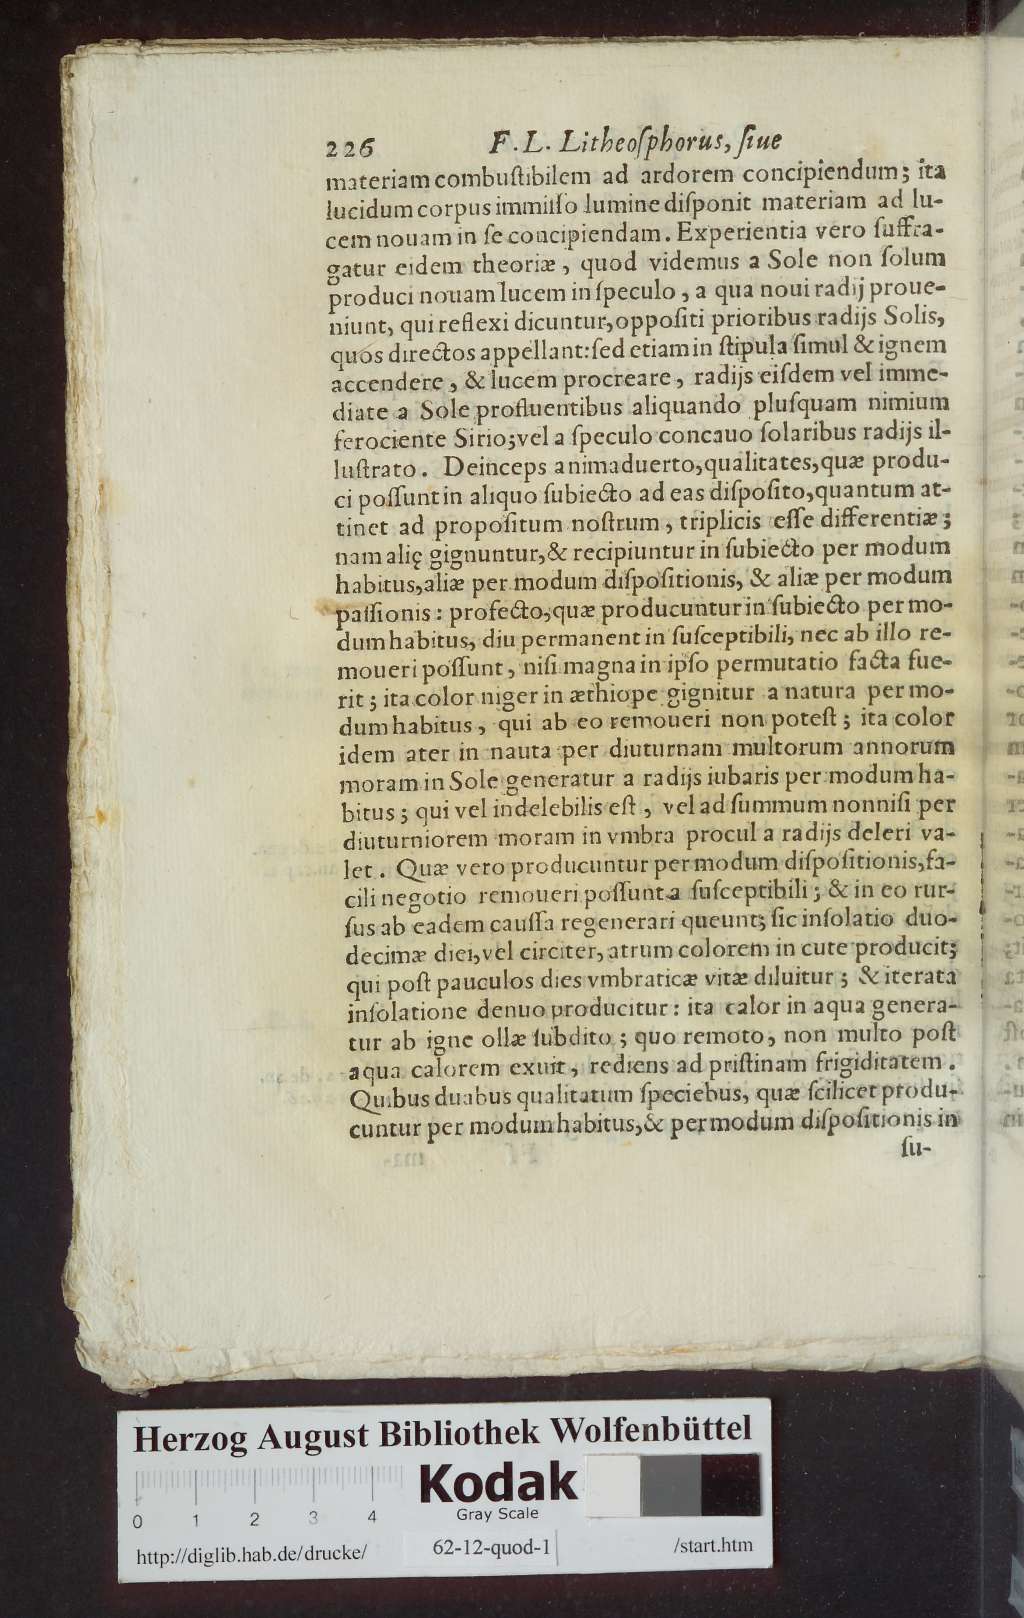 226 F. L. Litheoſphorus, ſiue
materiam combuſtibilem ad ardorem concipiendum; ita
lucidum corpus immiſſo lumine diſponit materiam ad lu-
cem nouam in ſe concipiendam. Experientia vero ſuffra-
gatur eidem theoriæ, quod videmus a Sole non ſolum
produci nouam lucem in ſpeculo, a qua noui radij proue-
niunt, qui reflexi dicuntur, oppoſiti prioribus radijs Solis,
quos directos appellant: ſed etiam in ſtipula ſimul & ignem
accendere, & lucem procreare, radijs eiſdem vel imme-
diate a Sole profluentibus aliquando pluſquam nimium
ferociente Sirio; vel a ſpeculo concauo ſolaribus radijs il-
luſtrato. Deinceps animaduerto, qualitates, quæ produ-
ci poſſunt in aliquo ſubiecto ad eas diſpoſito, quantum at-
tinet ad propoſitum noſtrum, triplicis eſſe differentiæ;
nam alię gignuntur, & recipiuntur in ſubiecto per modum
habitus, aliæ per modum diſpoſitionis, & aliæ per modum
paſſionis: profecto, quæ producuntur in ſubiecto per mo-
dum habitus, diu permanent in ſuſceptibili, nec ab illo re-
moueri poſſunt, niſi magna in ipſo permutatio facta fue-
rit; ita color niger in æthiope gignitur a natura per mo-
dum habitus, qui ab eo remoueri non poteſt; ita color
idem ater in nauta per diuturnam multorum annorum
moram in Sole generatur a radijs iubaris per modum ha-
bitus; qui vel indelebilis eſt, vel ad ſummum nonniſi per
diuturniorem moram in vmbra procul a radijs deleri va-
let. Quæ vero producuntur per modum diſpoſitionis, fa-
cili negotio remoueri poſſunt a ſuſceptibili; & in eo rur-
ſus ab eadem cauſſa regenerari queunt; ſic inſolatio duo-
decimæ diei, vel circiter, atrum colorem in cute producit;
qui poſt pauculos dies vmbraticæ vitæ diluitur; & iterata
inſolatione denuo producitur: ita calor in aqua genera-
tur ab igne ollæ ſubdito; quo remoto, non multo poſt
aqua calorem exuit, rediens ad priſtinam frigiditatem.
Quibus duabus qualitatum ſpeciebus, quæ ſcilicet produ-
cuntur per modum habitus, & per modum diſpoſitionis in
ſu-
Herzog August Bibliothek Wolfenbüttel
Kodak
Gray Scale
0 1 2 3 4
http://diglib.hab.de/drucke/ 62-12-quod-1 /start.htm